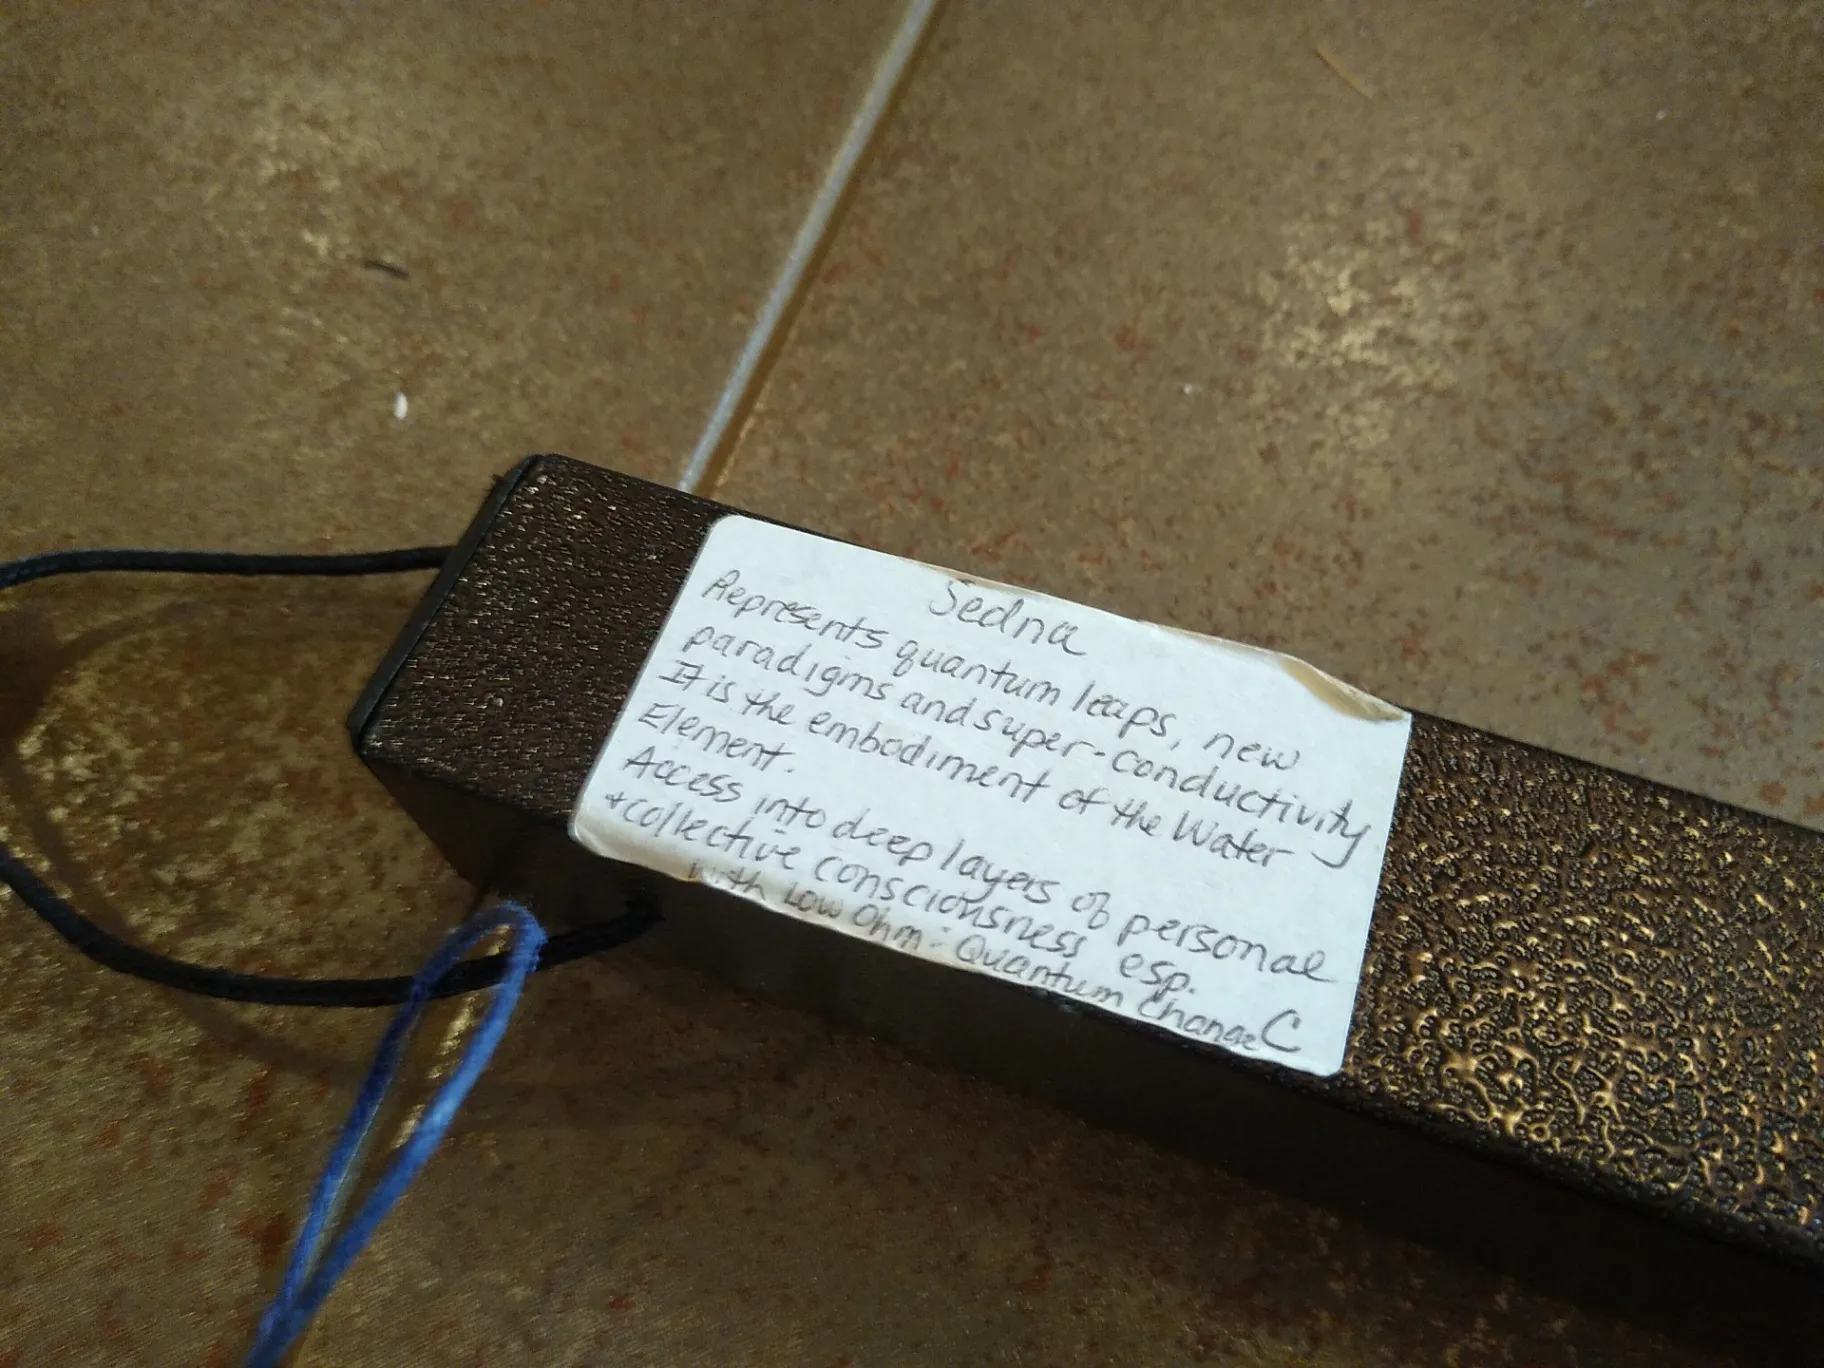 Sedna
Represents quantum leaps, new
paradigms and super-conductivity
It is the embodiment of the Water
Element.
Access into deep layers of personal
+ collective consciousness esp.
with Low Ohm - Quantum Change C